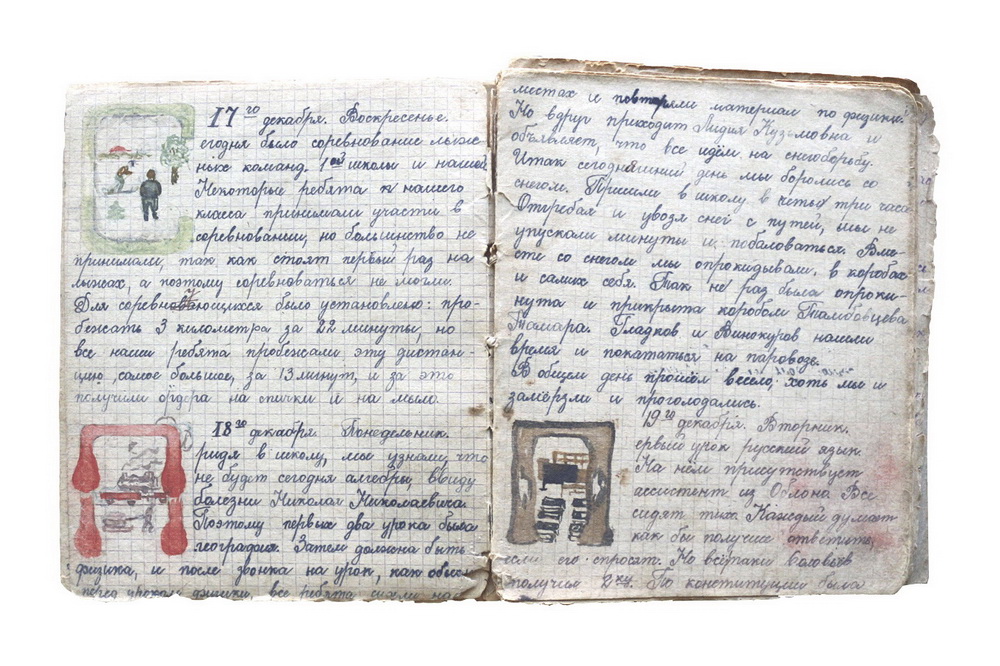 17го декабря. Воскресенье.
егодня было соревнование лыж-
ных команд. 1ой школы и нашей
Некоторые ребята и нашего
класса принимали участи в
соревновании, но большинство не
принимали, так как стоят первый раз на
лыжах, а поэтому соревноваться не могли.
Для соревнующихся было установлено: про-
бежать 3 километра за 22 минуты, но
все наши ребята пробежали эту дистан-
цию, самое большее, за 13 минут, и за это
получили ордера на спички и на мыло.
18го декабря. Понедельник.
ридя в школу, мы узнали, что
не будет сегодня алгебры, ввиду
болезни Николая Николаевича
Поэтому первых два урока была
география. Затем должна быть
физика, и после звонка на урок, как обычно
перед уроком физики, все ребята сидели на
листах и повторяли материал по физике.
Но вдруг приходит Лидия Кузьмовна и
объявляет, что все идём на снегоборьбу.
Итак сегодняшний день мы боролись со
снегом. Пришли в школу в четыре три часа
Отгребая и увозя снег с путей, мы не
упускали минуты и побаловаться. Вме-
сте со снегом мы опрокидывали в коробах
и самих себя. Так не раз была опроки-
нута и прикрыта коробом Тамбовцева
Тамара. Гладков и Винокуров нашли
время и покататься на паровозе.
В общем день прошёл весело, хоть мы и
замёрзли и проголодались.
19го декабря. Вторник.
ервый урок русский язык.
На нём присутствует
ассистент из Облона Все
сидят тихо Каждый думает
как бы получше ответить,
если его спросят. Но всётаки Соловьёв
получил 2ку. По конституции была